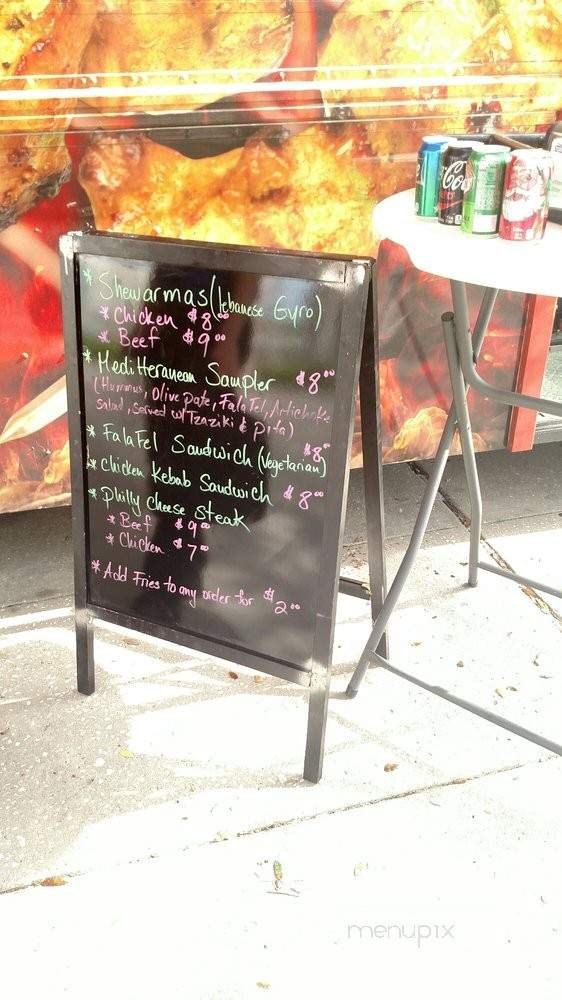 * Shewarmas (lebanese Gyro)
* Chicken $8.00
* Beef $9.00
* Mediterranean Sampler $8.00
(Hummus, Olive Pate, Falafel, Artichoke
Salad, served w/ Tzaziki & Pita)
* Falafel Sandwich (Vegetarian) $8.00
* Chicken Kebab Sandwich $8.00
* Philly Cheese Steak
* Beef $9.00
* Chicken $7.00
* Add Fries to any order for $2.00
Coke
menupix